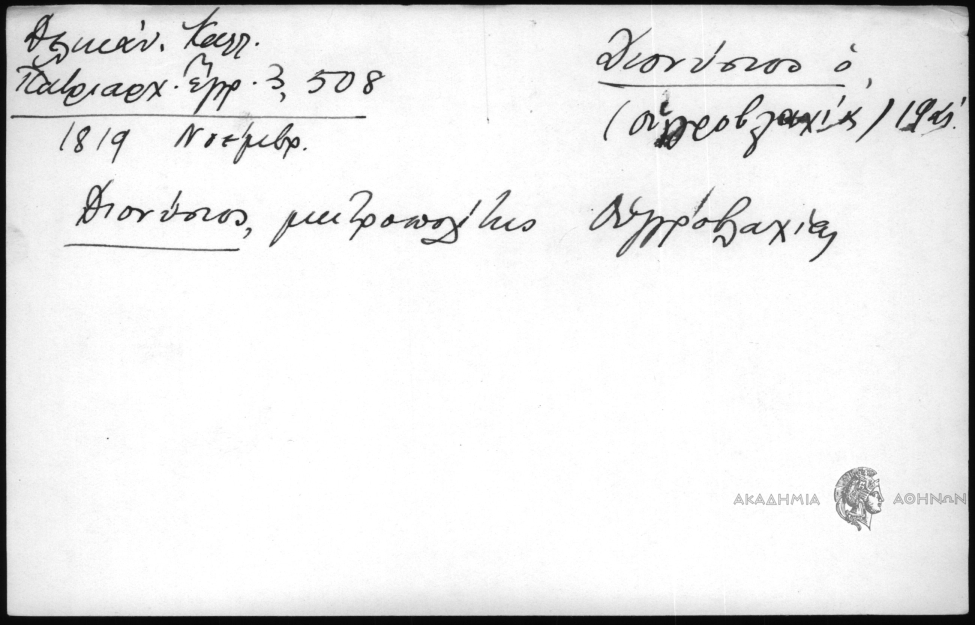 Δελικάν. Καλλ.
Πατριαρχ. Ἔγγρ. 3, 508
1819 Νοέμβρ.
Διονύσιος ὁ,
(Οὑγγροβλαχίας) 19 αἰ.
Διονύσιος, μητροπολίτης Οὑγγροβλαχίας
ΑΚΑΔΗΜΙΑ ΑΘΗΝΩΝ